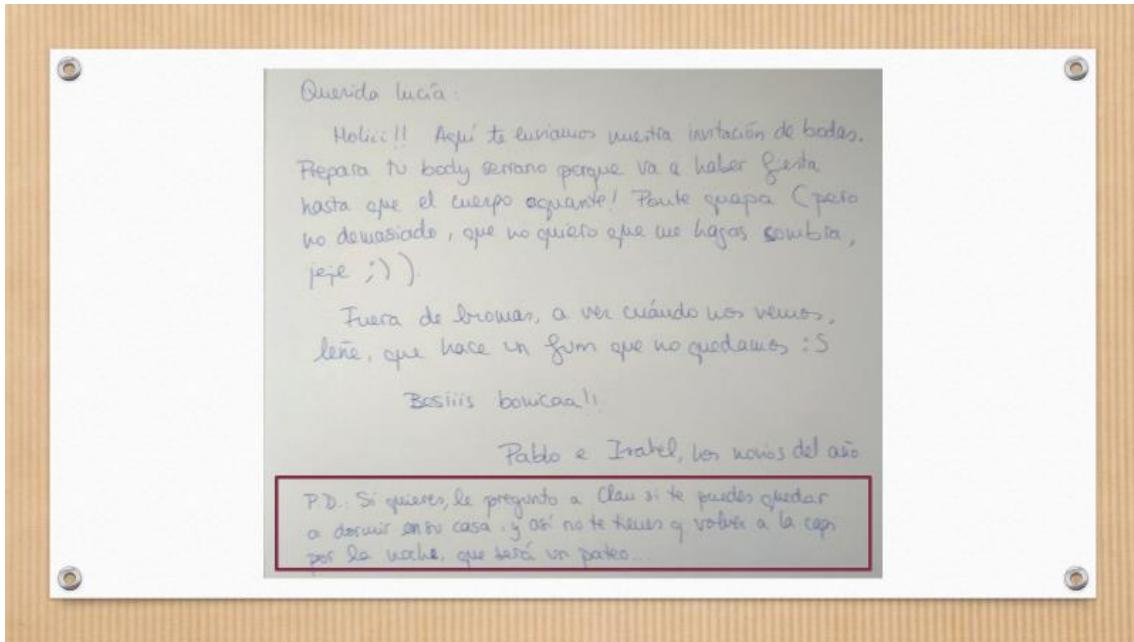 Querida Lucía:
Holiii!! Aquí te enviamos nuestra invitación de bodas.
Prepara tu body serrano porque va a haber fiesta
hasta que el cuerpo aguante! Ponte guapa (pero
no demasiado, que no quiero que me hagas sombra,
jeje ;))
Fuera de bromas, a ver cuándo nos vemos,
leñe, que hace un fum que no quedamos :S
Besiiis bonicaa!!
Pablo e Isabel, los novios del año
P.D.: Si quieres, le pregunto a Clau si te puedes quedar
a dormir en su casa, y así no te tienes q volver a la cap
por la noche, que será un pateo...